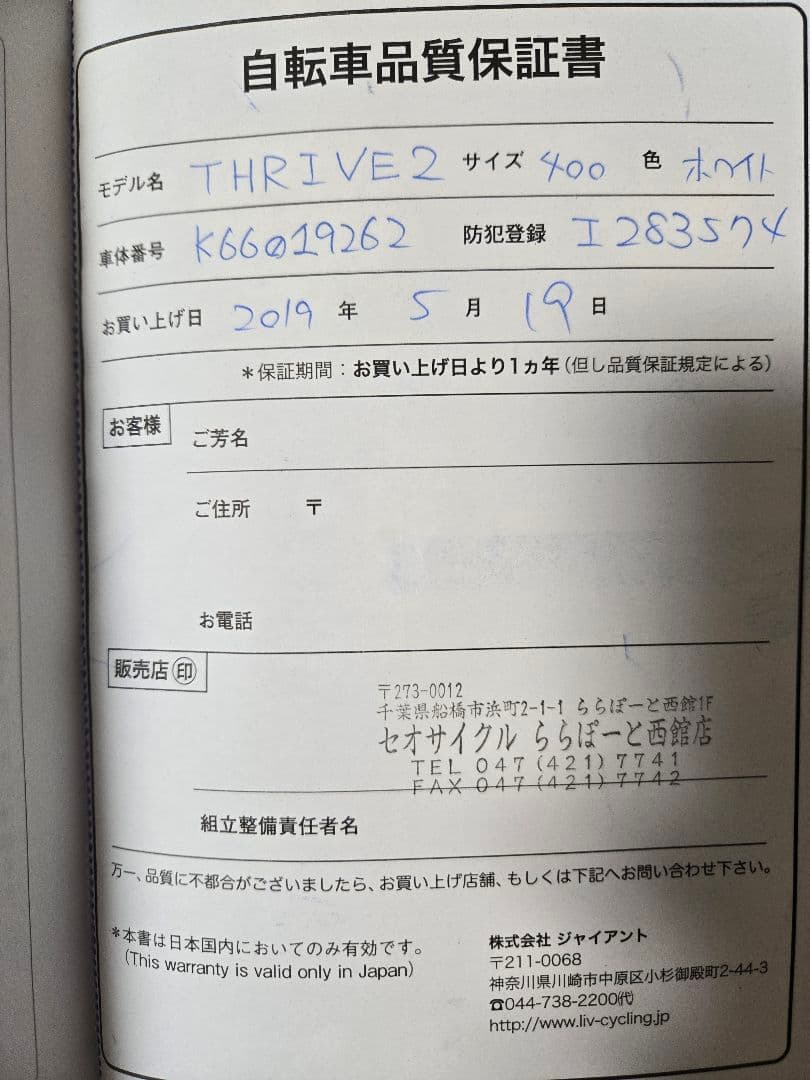 自転車品質保証書
モデル名 THRIVE2 サイズ 400 色 ホワイト
車体番号 K66019262 防犯登録 I283574
お買い上げ日 2019 年 5 月 19 日
*保証期間:お買い上げ日より1ヵ年(但し品質保証規定による)
お客様 ご芳名
ご住所 〒
お電話
販売店 ㊞
〒273-0012
千葉県船橋市浜町2-1-1 ららぽーと西館1F
セオサイクル ららぽーと西館店
TEL 047(421)7741
FAX 047(421)7742
組立整備責任者名
万一、品質に不都合がございましたら、お買い上げ店舗、もしくは下記へお問い合わせ下さい。
*本書は日本国内においてのみ有効です。
(This warranty is valid only in Japan)
株式会社 ジャイアント
〒211-0068
神奈川県川崎市中原区小杉御殿町2-44-3
☎044-738-2200㈹
http://www.liv-cycling.jp